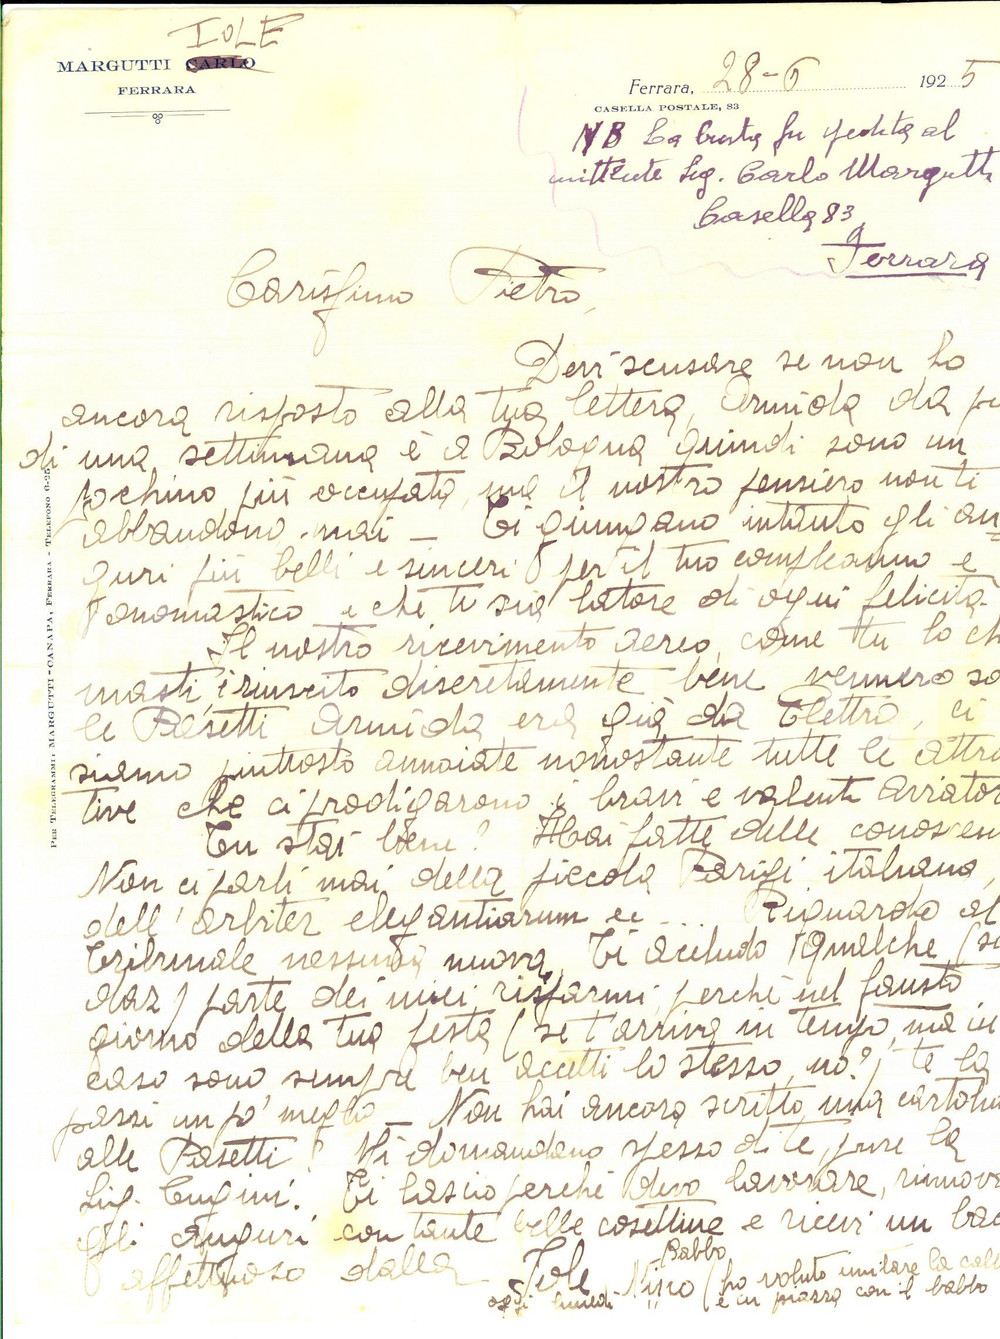 IOLE
MARGUTTI CARLO
FERRARA
Ferrara, 28-6 1925
CASELLA POSTALE, 83
NB La busta fu spedita al
mittente Sig. Carlo Margutti
Casella 83
Ferrara
Carissimo Pietro,
Devi scusare se non ho
ancora risposto alla tua lettera, Armida da più
di una settimana è a Bologna quindi sono un
pochino più occupata, ma il nostro pensiero non ti
abbandona mai — Ti giungano intanto gli au=
guri più belli e sinceri per il tuo compleanno e
onomastico e che ti sia latore di ogni felicità.
Il nostro ricevimento aereo, come tu lo chia
masti, è riuscito discretamente bene vennero so
le Pasetti Armida era già da Elettra, ci
siamo piuttosto annoiate nonostante tutte le attra
tive che ci prodigarono i bravi e valenti aviatori
Tu stai bene? Hai fatte delle conoscen
Non ci parli mai della piccola Parigi italiana,
dell'arbiter elegantiarum ei .... Riguardo al
Tribunale nessuna nuova. Ti accludo qualche
parte dei miei risparmi perchè nel fausto
giorno della tua festa (se t'arriva in tempo, ma in
caso sono sempre ben accetti lo stesso, no?) te la
passi un po' meglio — Non hai ancora scritto una cartolina
alle Pasetti! Mi domandano spesso di te, pure la
Sig. Cugini. Ti lascio perché devo lavorare, rinnova
gli auguri con tante belle cosettine e ricevi un bac
affettuoso dalla Iole
Babbo
Nino (ha voluto imitare la
oggi lunedì è in piazza con il babbo
PER TELEGRAMMI: MARGUTTI-CANAPA, FERRARA - TELEFONO 6-25